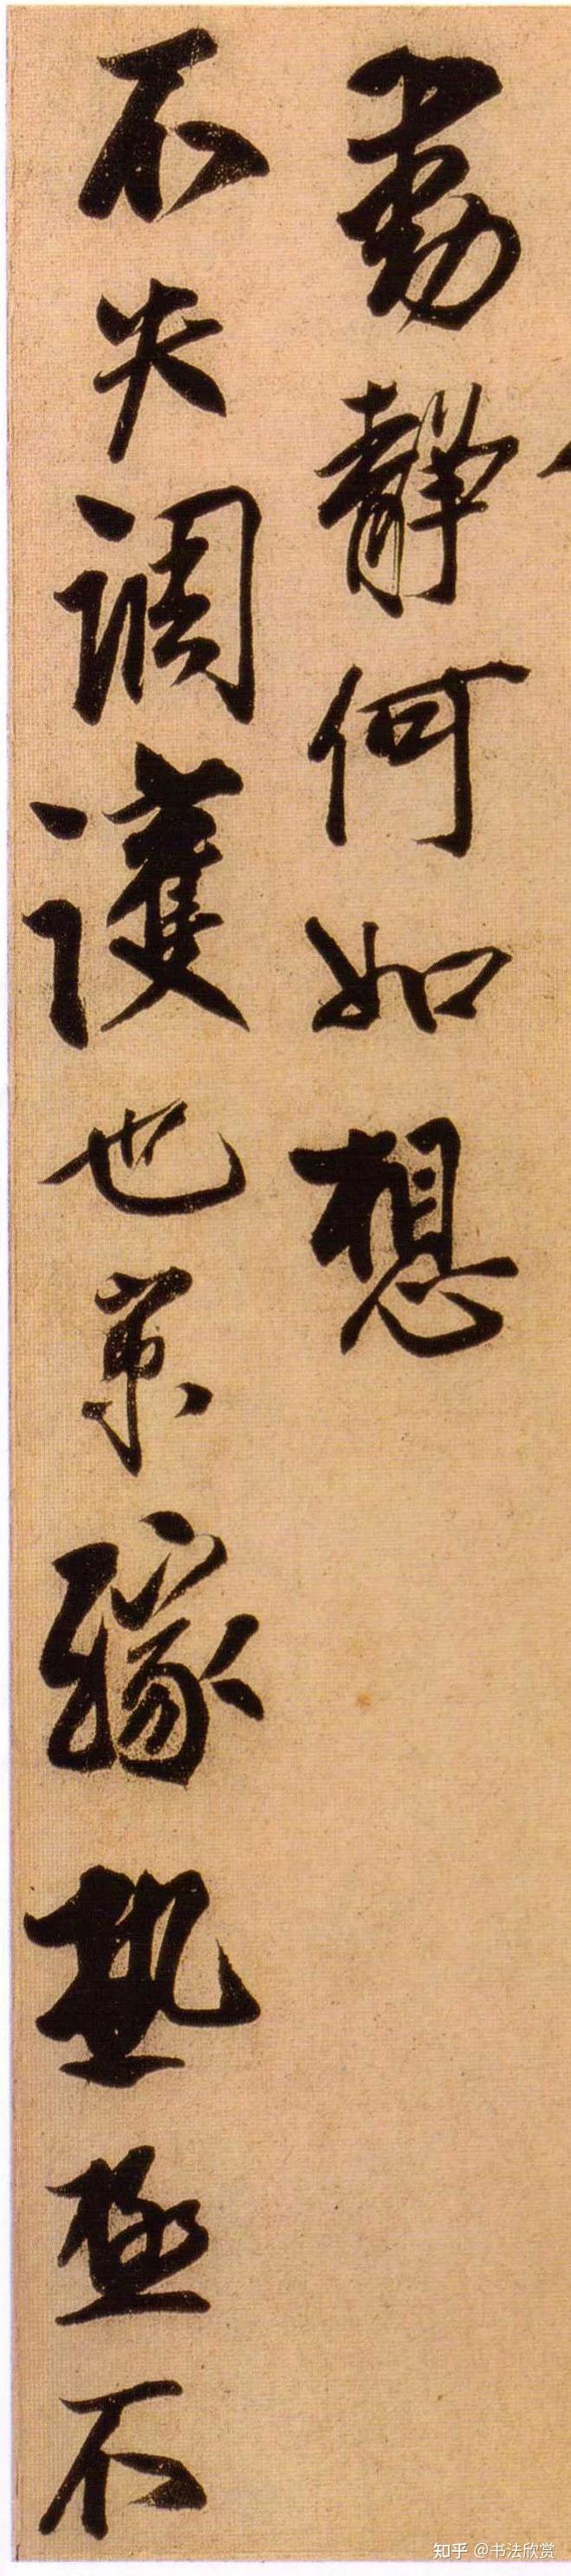 動靜何如想
不失調護也京緣熱極不
知乎 @书法欣赏